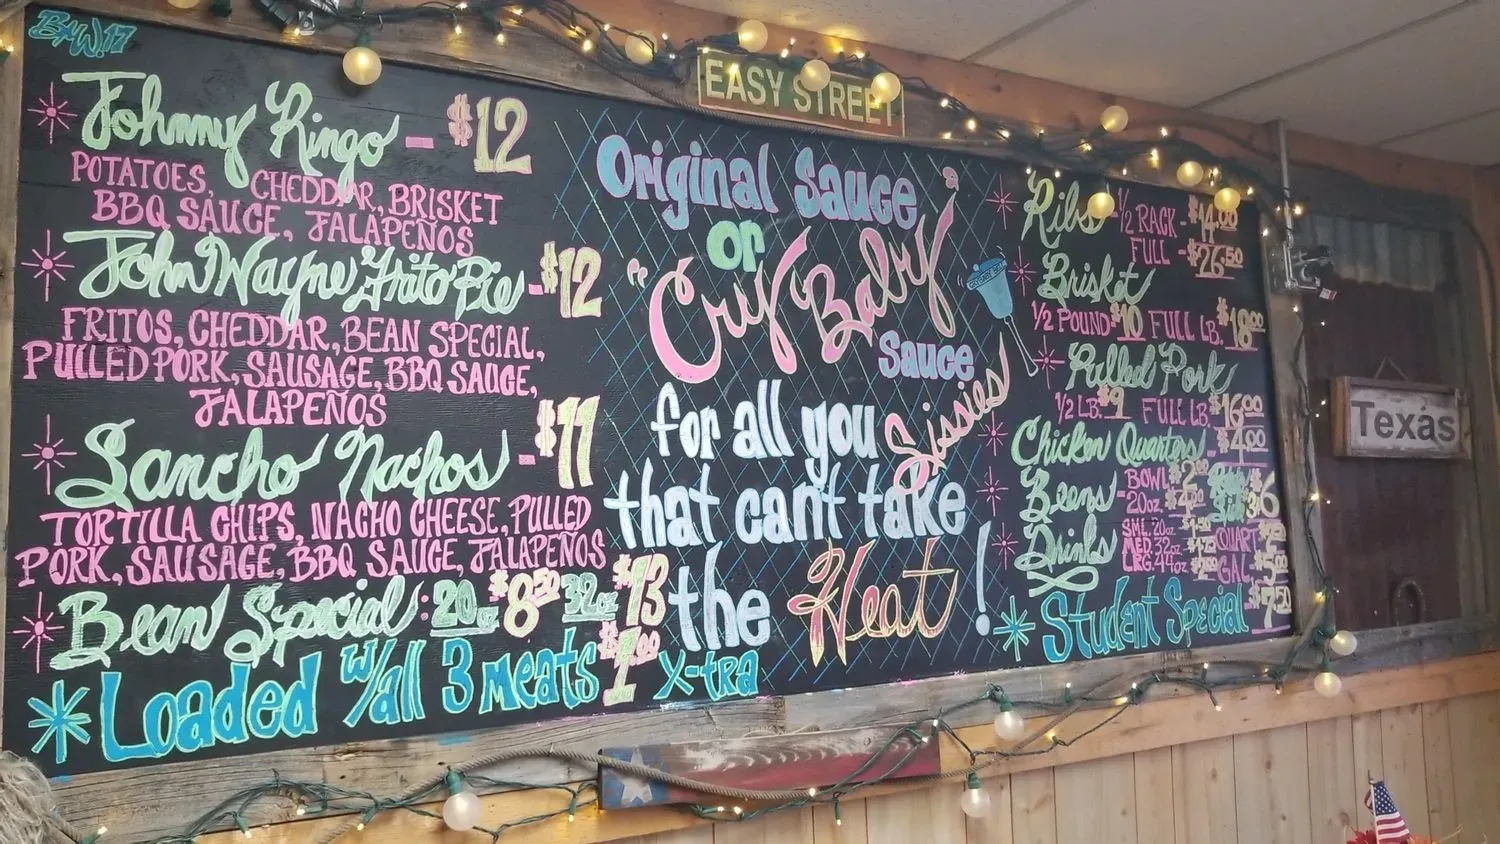 BMW.17
EASY STREET
Johnny Ringo - $12
POTATOES, CHEDDAR, BRISKET
BBQ SAUCE, JALAPEÑOS
John Wayne Frito Pie - $12
FRITOS, CHEDDAR, BEAN SPECIAL,
PULLED PORK, SAUSAGE, BBQ SAUCE,
JALAPEÑOS
Sancho Nachos - $11
TORTILLA CHIPS, NACHO CHEESE, PULLED
PORK, SAUSAGE, BBQ SAUCE, JALAPEÑOS
Bean Special: 20oz $8.50 32oz $13
Loaded w/all 3 meats $1.00 X-tra
Original Sauce
or
"Cry Baby"
Sauce
for all you
Sissies
that can't take
the Heat!
Ribs - 1/2 RACK - $14.00
FULL - $26.50
Brisket
1/2 POUND $10 FULL LB. $18.00
Pulled Pork
1/2 LB. $9 FULL LB. $16.00
Chicken Quarters - $4.00
Beans - BOWL $2.00
20oz. $4.00 $6
Drinks SML. 20oz
MED. 32oz QUART
LRG. 44oz GAL. $5.00
Student Special $7.50
Texas